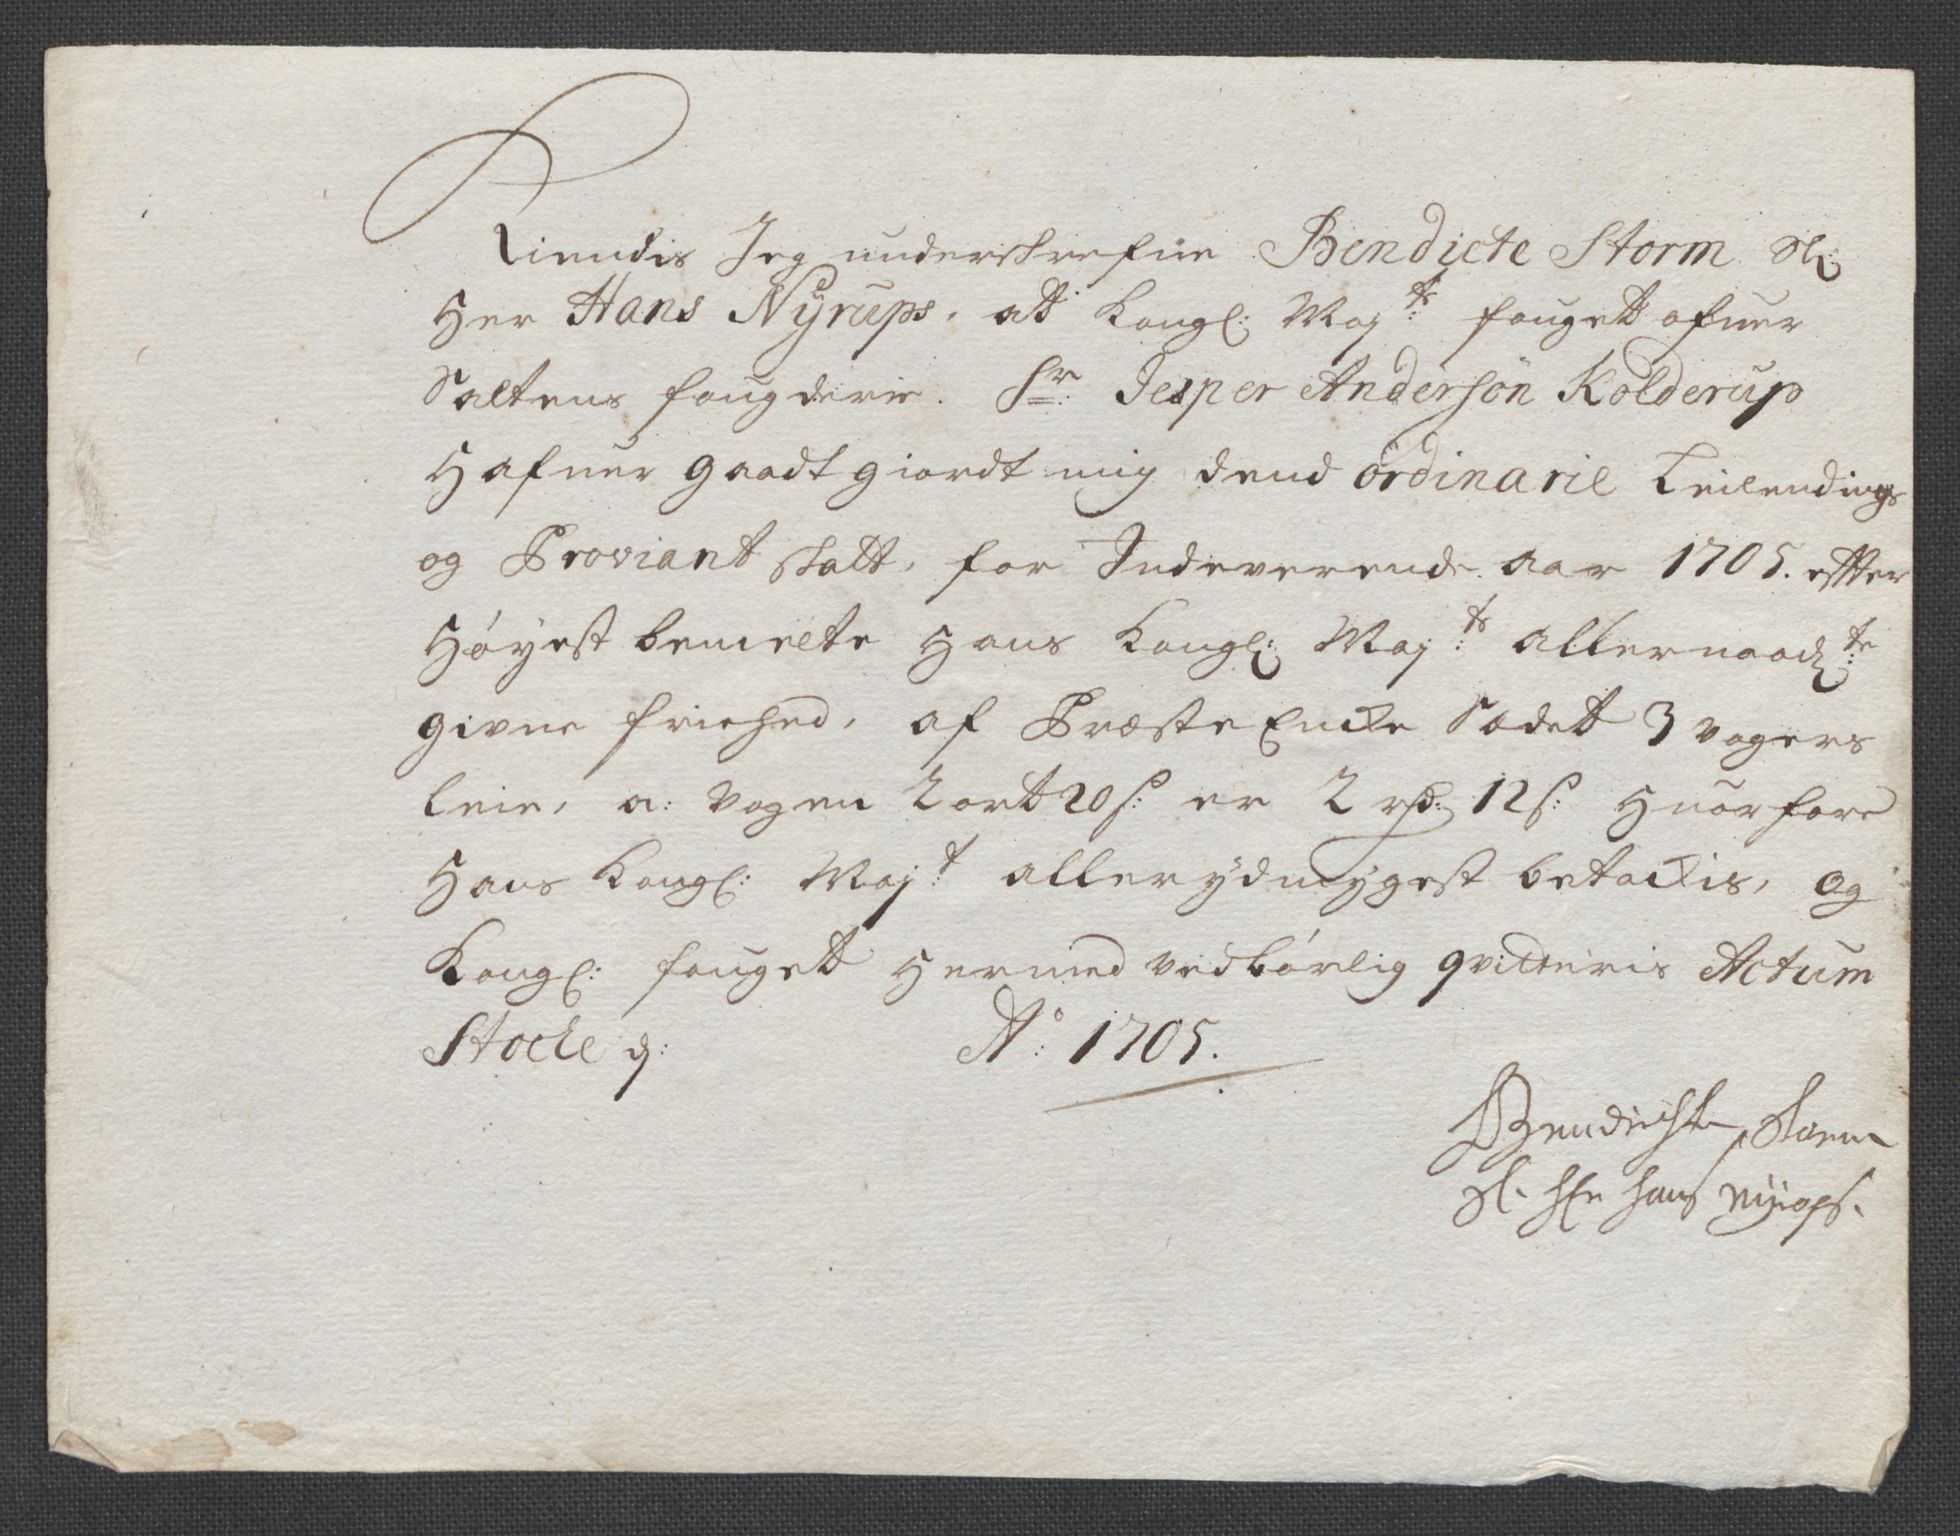 Kiendis Jeg underskrefne Bendicte Storm Sl:
Her Hans Nyrups, att Kongl: Maj:ts fougett ofuer
Saltens fougderie. Sr: Jesper Andersøn Kolderup
Hafuer gaadt giordt mig dend ordinarie Leilendings
og Proviant skatt, for Indeverende aar 1705. effter
Høyest bemelte Hans Kongl: Maj:ts allernaadig:te
givne friehed, af Præste Encke Sædett 3 vogers
leie, a: vogen 2 ort 20 s: er 2 rd: 12 s: Huorfore
Hans Kongl: Maj:t allerydmygest betackis, og
Kongl: fougett Hermed vedbørlig qvitteris Actum
Stocke d: Ao: 1705.
Bendichte Storm
Sl. Hr Hans Nyrops.